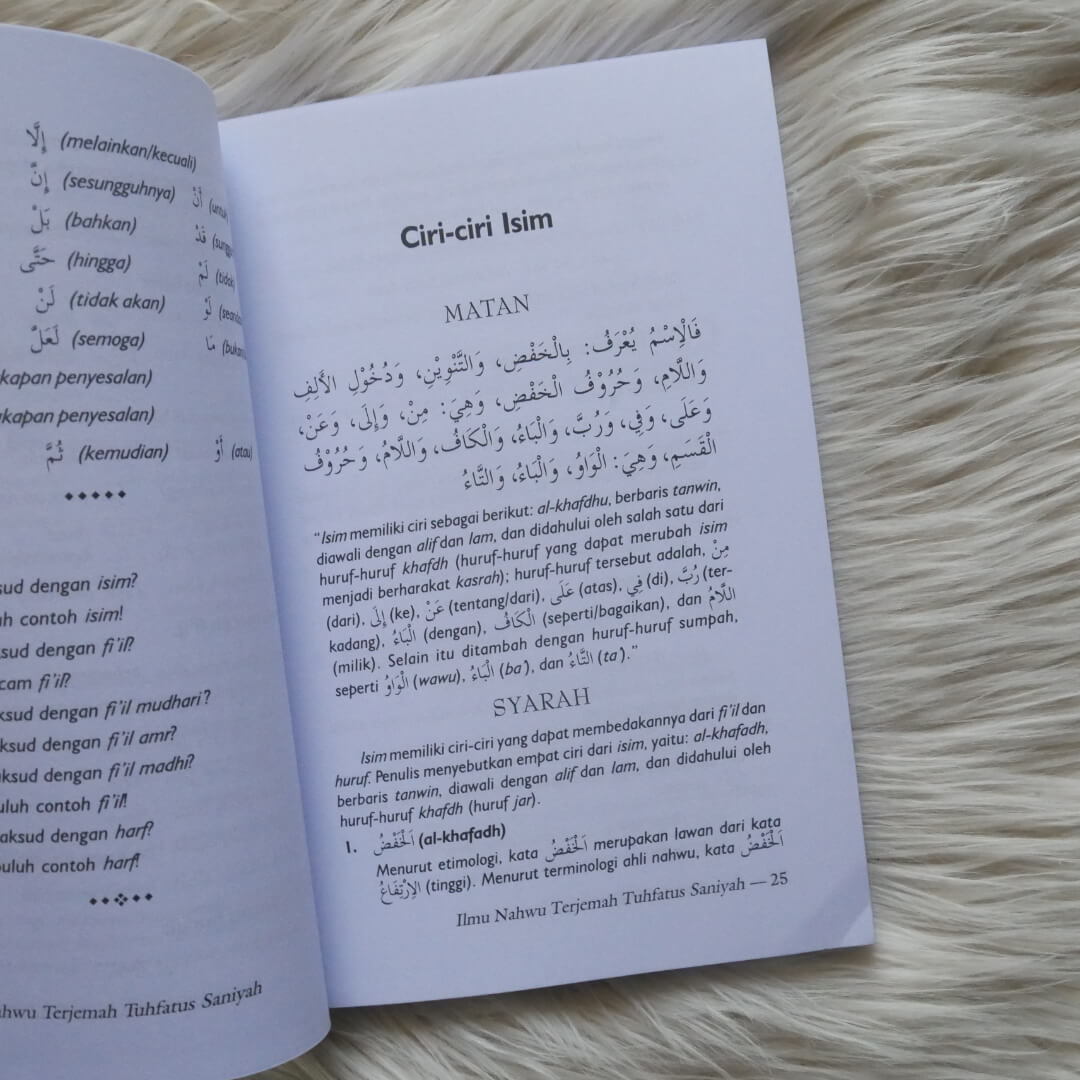 إِلَّا (melainkan/kecuali)
إِنَّ (sesungguhnya) أَنْ
بَلْ (bahkan) قَدْ
حَتَّى (hingga) لَمْ
لَنْ (tidak akan) لَوْ
لَعَلَّ (semoga) مَا
penyesalan)
penyesalan)
ثُمَّ (kemudian) أَوْ (atau)
dengan isim?
contoh isim!
dengan fi'il?
fi'il?
dengan fi'il mudhari?
dengan fi'il amr?
dengan fi'il madhi?
contoh fi'il!
dengan harf?
contoh harf!
Terjemah Tuhfatus Saniyah
Ciri-ciri Isim
MATAN
فَالْاِسْمُ يُعْرَفُ: بِالْخَفْضِ، وَالتَّنْوِيْنِ، وَدُخُوْلِ الأَلِفِ
وَاللَّامِ، وَحُرُوْفُ الْخَفْضِ، وَهِيَ: مِنْ، وَإِلَى، وَعَنْ،
وَعَلَى، وَفِي، وَرُبَّ، وَالْبَاءُ، وَالْكَافُ، وَاللَّامُ، وَحُرُوْفُ
الْقَسَمِ، وَهِيَ: الْوَاوُ، وَالْبَاءُ، وَالتَّاءُ
"Isim memiliki ciri sebagai berikut: al-khafdhu, berbaris tanwin,
diawali dengan alif dan lam, dan didahului oleh salah satu dari
huruf-huruf khafdh (huruf-huruf yang dapat merubah isim
menjadi berharakat kasrah); huruf-huruf tersebut adalah, مِنْ
(dari), إِلَى (ke), عَنْ (tentang/dari), عَلَى (atas), فِي (di), رُبَّ (ter-
kadang), الْبَاءُ (dengan), الْكَافُ (seperti/bagaikan), dan اللَّامُ
(milik). Selain itu ditambah dengan huruf-huruf sumpah,
seperti الْوَاوُ (wawu), الْبَاءُ (ba'), dan التَّاءُ (ta')."
SYARAH
Isim memiliki ciri-ciri yang dapat membedakannya dari fi'il dan
huruf. Penulis menyebutkan empat ciri dari isim, yaitu: al-khafadh,
berbaris tanwin, diawali dengan alif dan lam, dan didahului oleh
huruf-huruf khafdh (huruf jar).
1. اَلْخَفْضُ (al-khafadh)
Menurut etimologi, kata اَلْخَفْضُ merupakan lawan dari kata
الاِرْتِفَاعُ (tinggi). Menurut terminologi ahli nahwu, kata اَلْخَفْضُ
Ilmu Nahwu Terjemah Tuhfatus Saniyah — 25